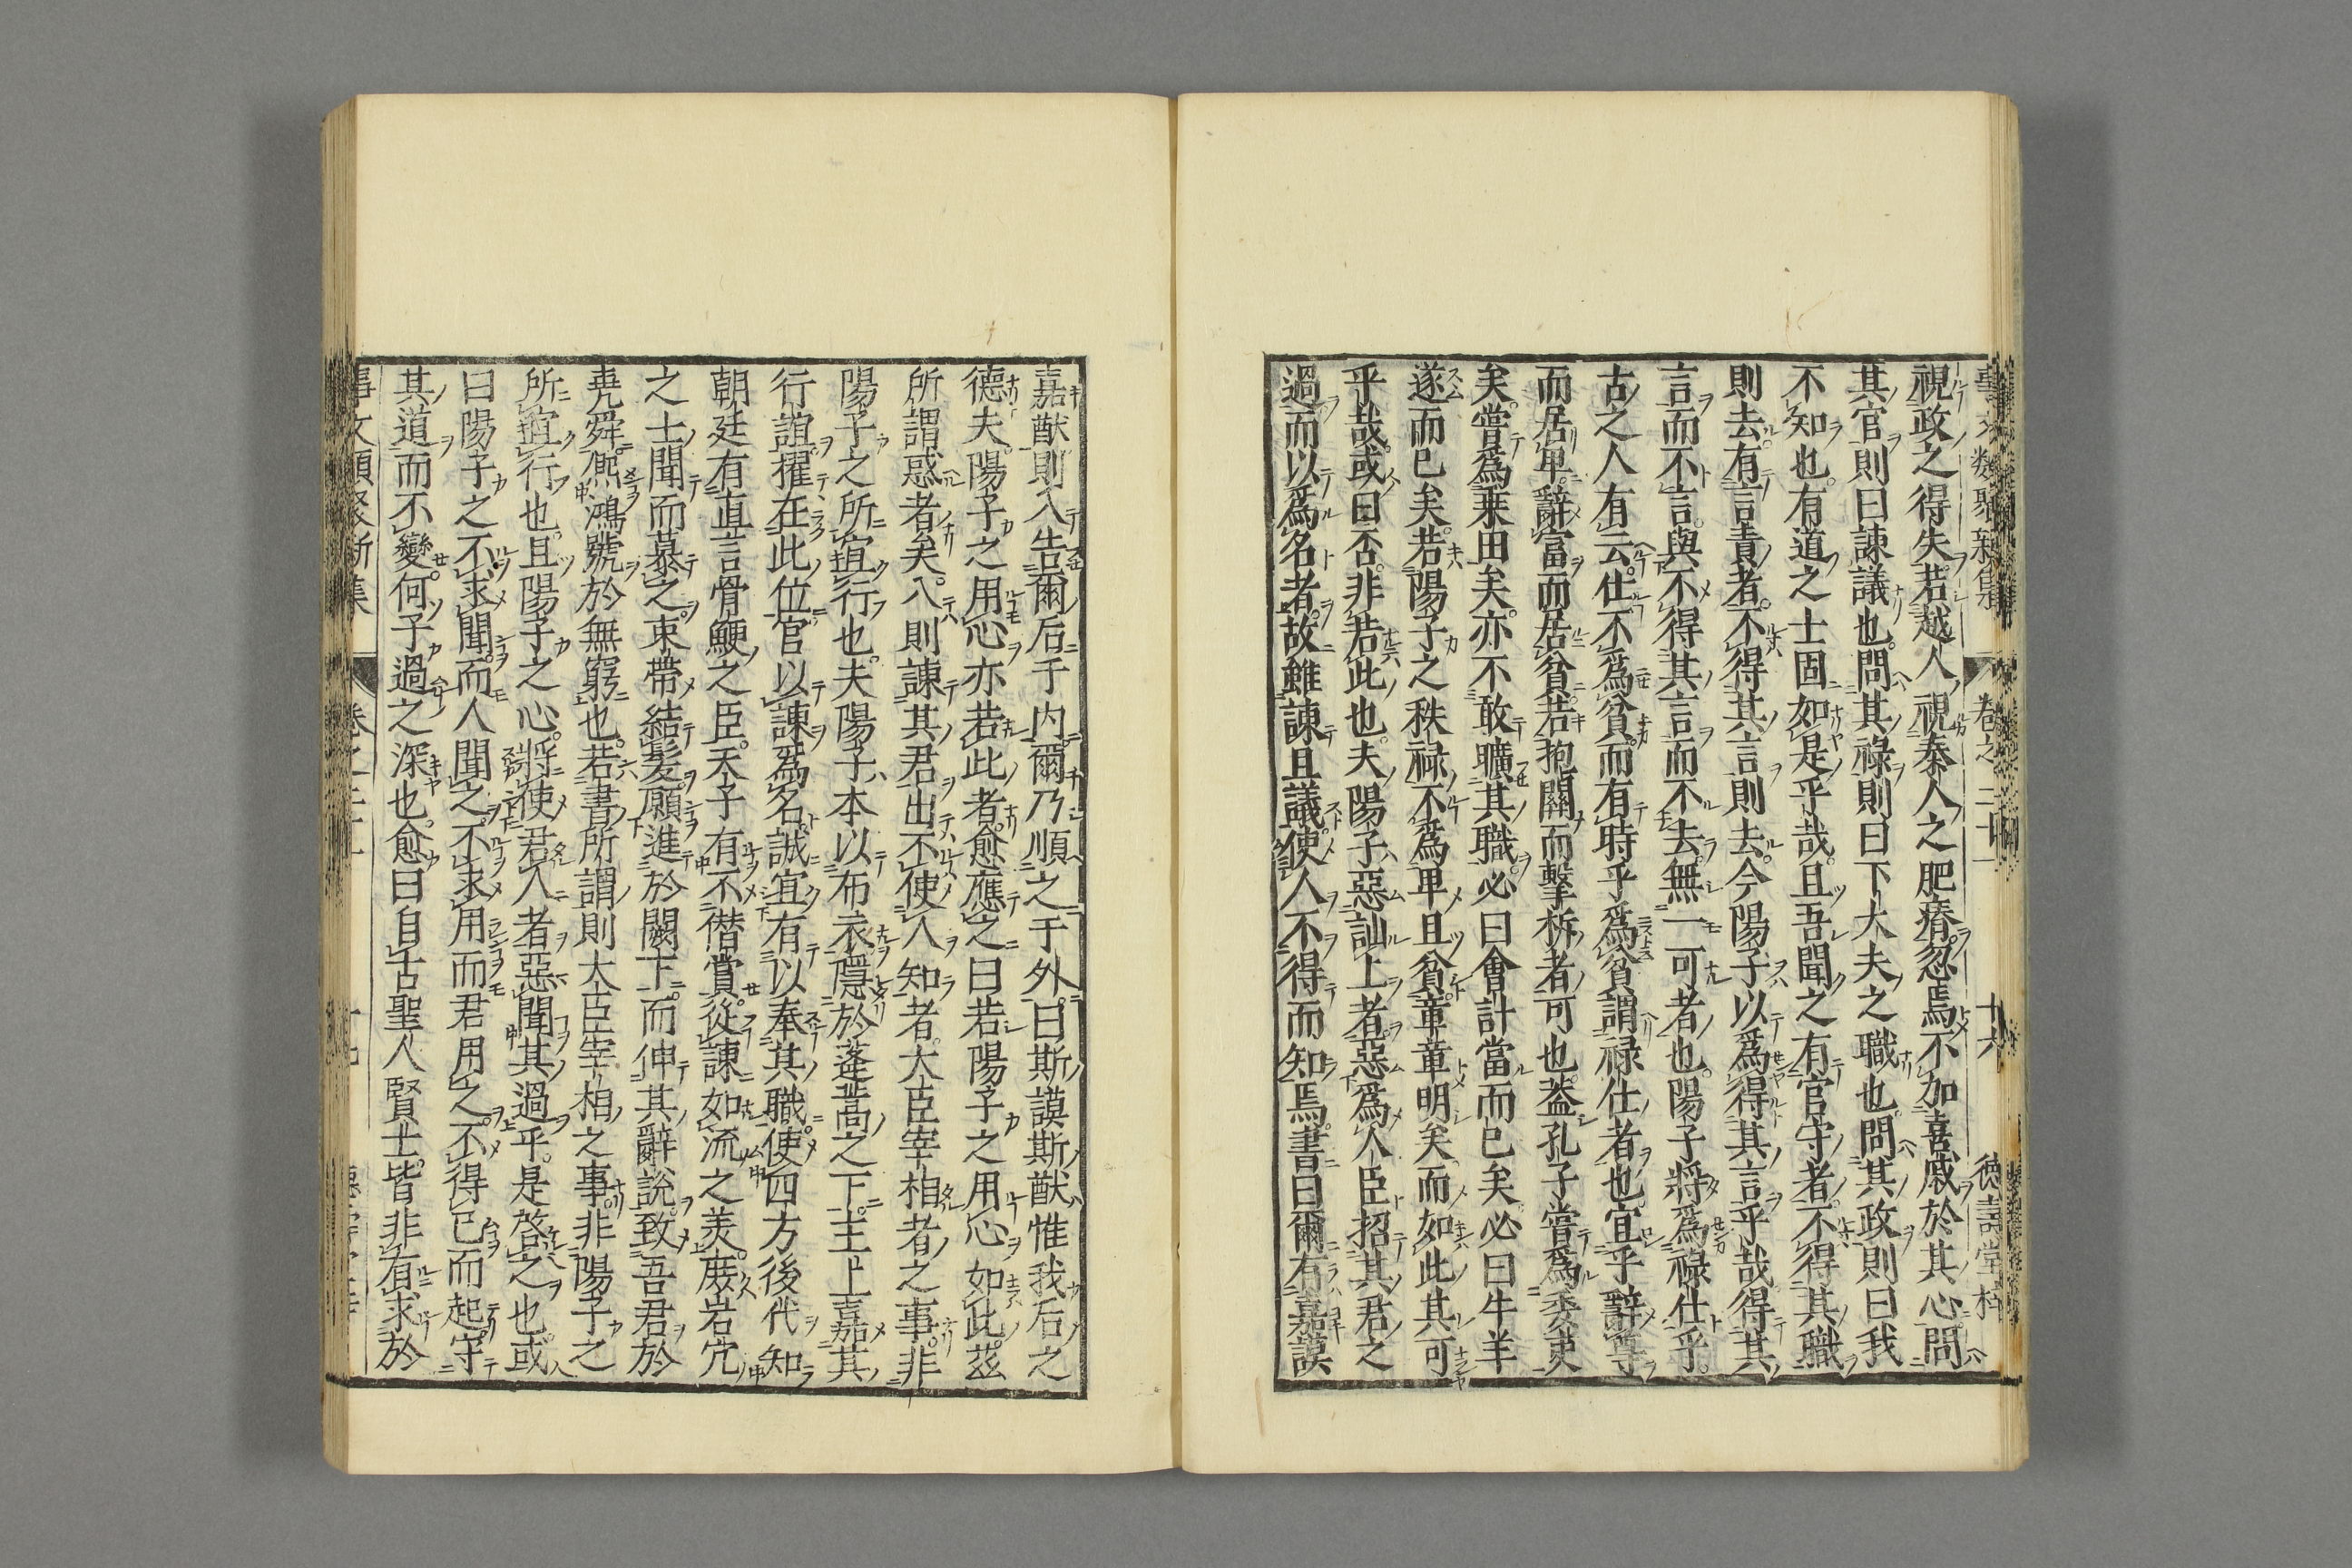 視政之得失。若越人視秦人之肥瘠。忽焉不加喜戚於其心。問
其官則曰諫議也。問其祿則曰下大夫之職也。問其政則曰我
不知也。有道之士固如是乎哉。且吾聞之有官守者。不得其職
則去。有言責者。不得其言則去。今陽子以爲得其言乎哉。得其
言而不言。與不得其言而不去。無一可者也。陽子將爲祿仕乎。
古之人有云。仕不爲貧。而有時乎爲貧。謂祿仕者也。宜乎辭尊
而居卑。辭富而居貧。若抱關而擊柝者可也。葢孔子嘗爲委吏
矣。嘗爲乗田矣。亦不敢曠其職。必曰會計當而已矣必曰牛羊
遂而已矣。若陽子之秩祿不爲卑且貧。章章明矣。而如此其可
乎哉。或曰否。非若此也。夫陽子惡訕上者。惡爲人臣招其君之
過而以爲名者。故雖諫且議使人不得而知焉。書曰爾有嘉謨
嘉猷則入告爾后于内。爾乃順之于外。曰斯謨斯猷惟我后之
德夫。陽子之用心亦若此者。愈應之曰若陽子之用心如此。茲
所謂惑者矣。入則諫其君。出不使人知者。大臣宰相者之事。非
陽子之所宜行也。夫陽子本以布衣隱於蓬蒿之下。主上嘉其
行誼。擢在此位官以諫爲名。誠宜有以奉其職。使四方後代知
朝廷有直言骨鯁之臣。天子有不僭賞。從諫如流之美。庶岩穴
之士聞而慕之。束帶結髮。願進於闕下。而伸其辭說。致吾君於
堯舜。熈鴻號於無窮也。若書所謂則大臣宰相之事。非陽子之
所宜行也。且陽子之心。將使君人者惡聞其過乎。是啓之也。或
曰陽子之不求聞。而人聞之。不求用而君用之。不得已而起。守
其道而不變。何子過之深也。愈曰自古聖人賢士。皆非有求於